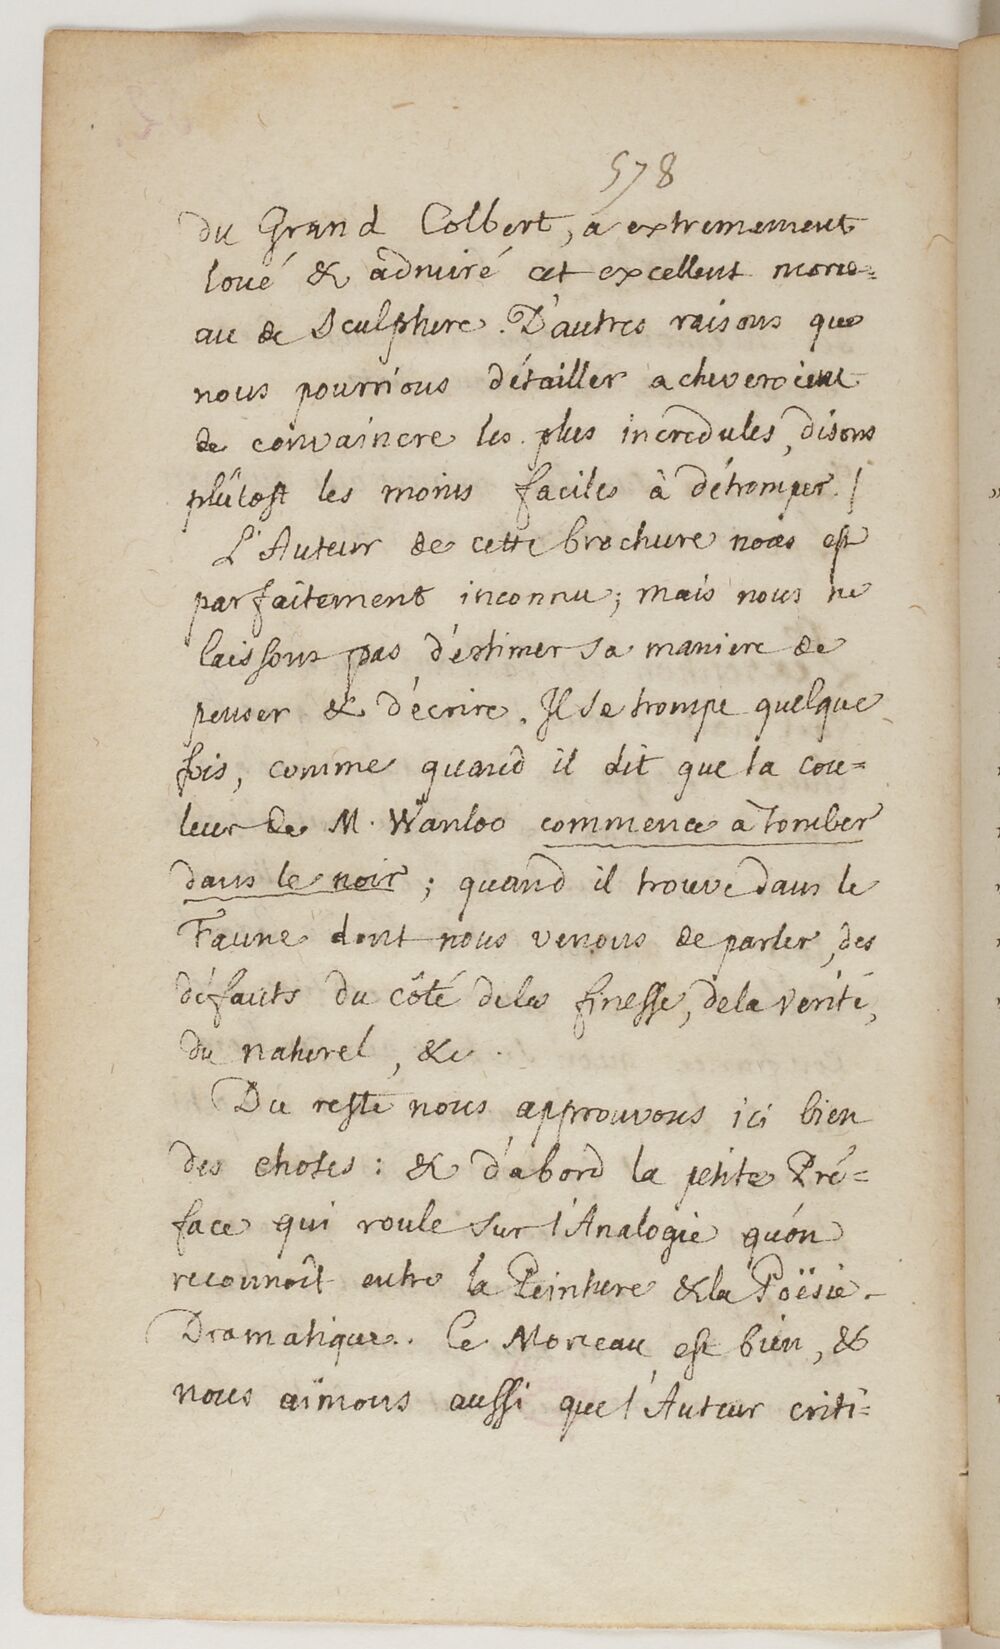 578
du Grand Colbert, a extremement
loué & admiré cet excellent morce=
au de Sculpture. D'autres raisons que
nous pourrions détailler acheveroient
de convaincre les plus incredules, disons
plûtost les moins faciles à détromper. /
L'Auteur de cette brochure nous est
parfaitement inconnu; mais nous ne
laissons pas d'éstimer sa maniere de
penser & d'écrire. Il se trompe quelque
fois, comme quand il dit que la cou=
leur de M. Wanloo commence a Tomber
dans le noir; quand il trouve dans le
Faune dont nous venons de parler, des
défauts du côté de la finesse, de la verité,
du naturel, &c.
Du reste nous approuvons ici bien
des choses: & d'abord la petite Pré=
face qui roule sur l'Analogie qu'on
reconnoît entre la Peinture & la Poësie
Dramatique. Ce Morceau est bien, &
nous aimons aussi que l'Auteur criti=